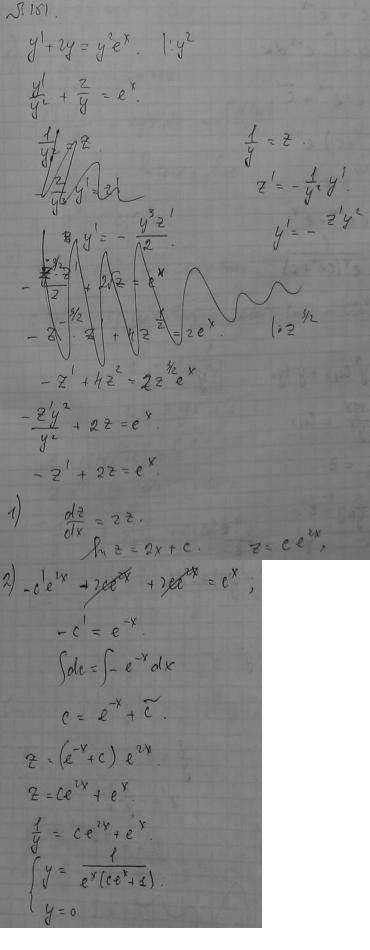 №151.
y' + 2y = y²eˣ. |: y²
y'/y² + 2/y = eˣ.
1/y² = z.
1/y = z.
z' = -1/y² y'.
y' = - z'y²
- 2/y³ y' = z'
y' = - y³z'/2.
-z' + 4z² = 2z^(3/2) eˣ
-z'y²/y² + 2z = eˣ.
-z' + 2z = eˣ.
1) dz/dx = 2z.
ln z = 2x + c. z = ce²ˣ,
2) -c'e²ˣ - 2ce²ˣ + 2ce²ˣ = eˣ,
-c' = e⁻ˣ.
∫dc = ∫-e⁻ˣdx
c = e⁻ˣ + c̃.
z = (e⁻ˣ + c) e²ˣ.
z = ce²ˣ + eˣ.
1/y = ce²ˣ + eˣ.
{ y = 1/(eˣ(ceˣ+1)).
y = 0